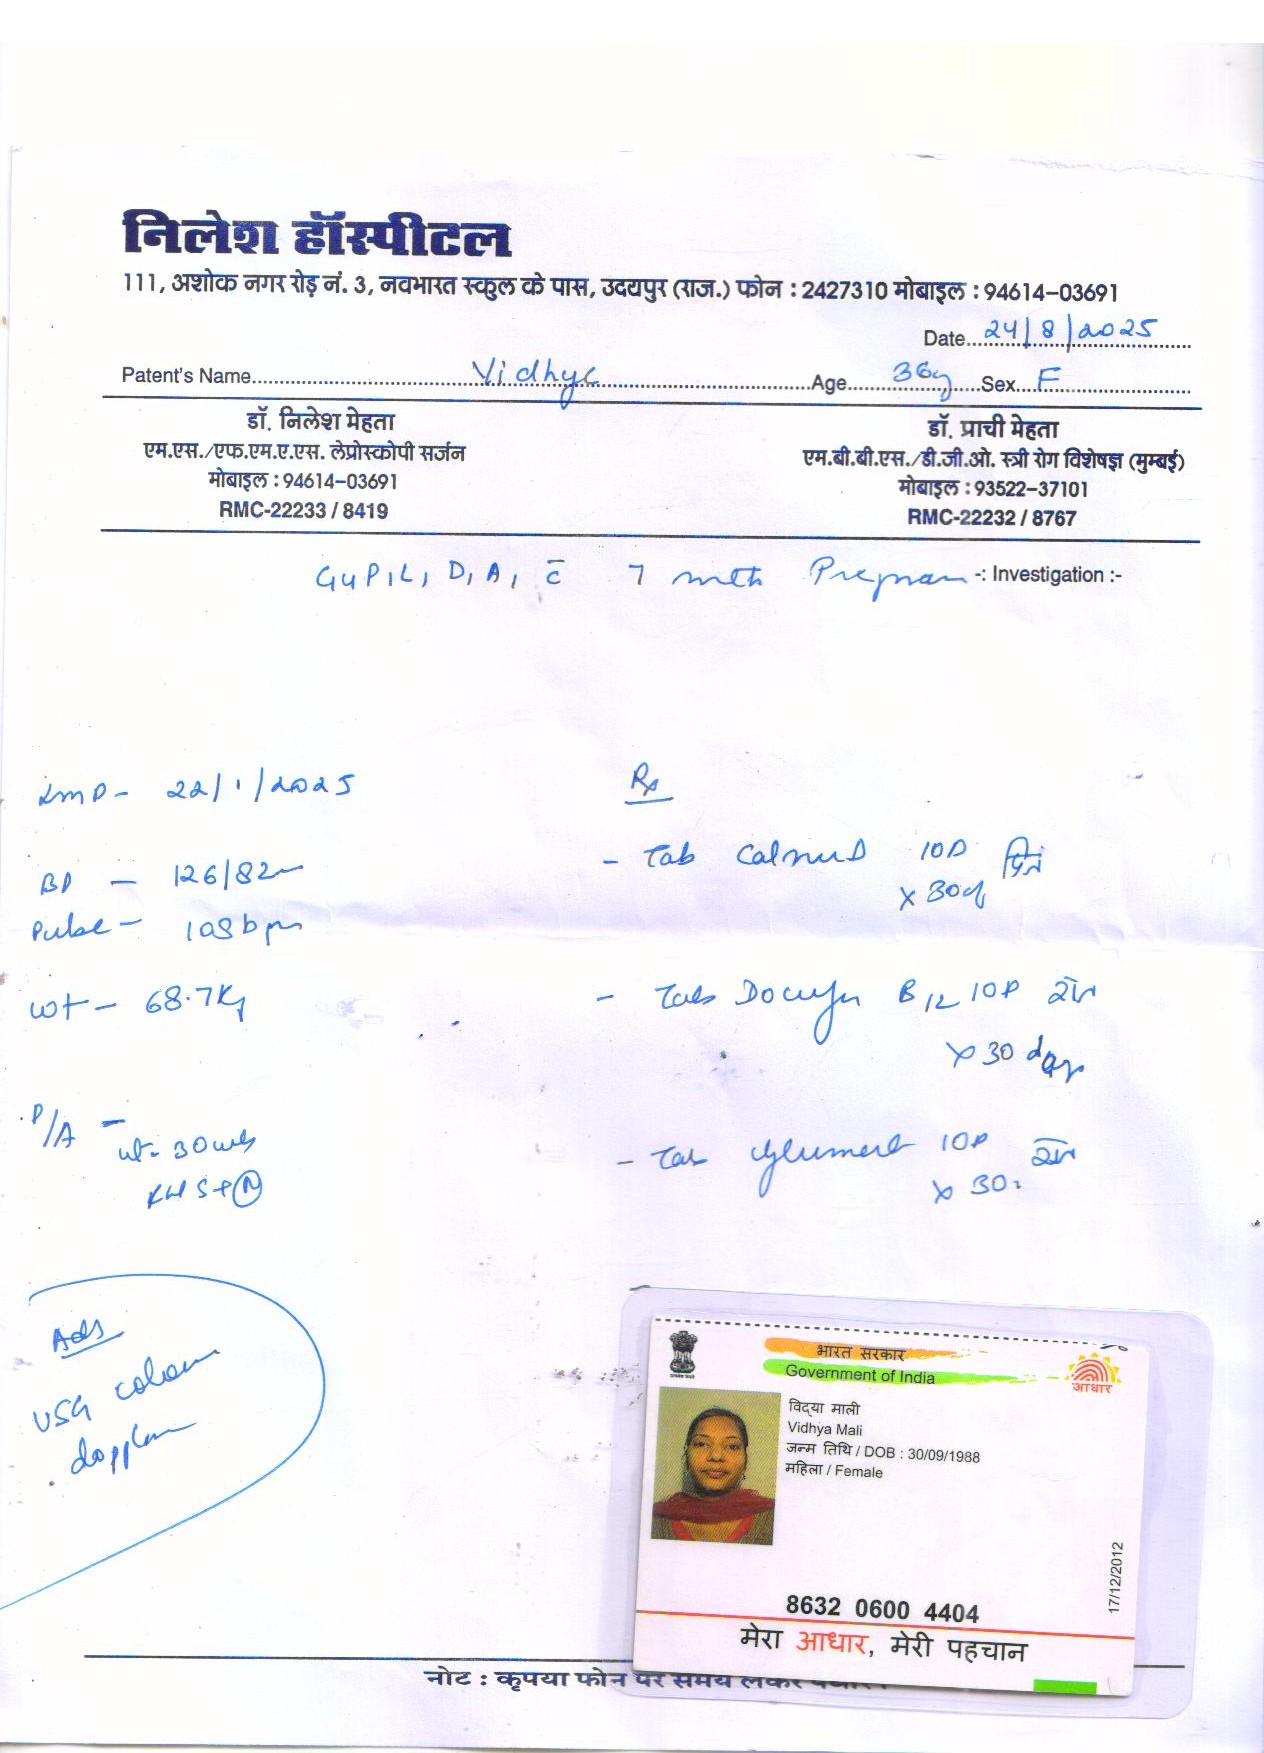 निलेश हॉस्पीटल
111, अशोक नगर रोड़ नं. 3, नवभारत स्कुल के पास, उदयपुर (राज.) फोन : 2427310 मोबाइल : 94614-03691
Date 24/8/2025
Patent's Name Vidhya Age 36y Sex F
डॉ. निलेश मेहता
एम.एस./एफ.एम.ए.एस. लेप्रोस्कोपी सर्जन
मोबाइल : 94614-03691
RMC-22233 / 8419
डॉ. प्राची मेहता
एम.बी.बी.एस./डी.जी.ओ. स्त्री रोग विशेषज्ञ (मुम्बई)
मोबाइल : 93522-37101
RMC-22232 / 8767
G4P1L1 D1 A1 c̄ 7 mth
-: Investigation :-
LMP - 22/1/2025
BP - 126/82
Pulse - 108 bpm
wt - 68.7Kg
P/A - ut - 30 wks
FHS + N
Adv
USG colour
doppler
Rx
- Tab 10D
x 30
- Tab B12 10D
x 30 days
- Tab 10D
x 30
भारत सरकार
Government of India
आधार
विद्या माली
Vidhya Mali
जन्म तिथि / DOB : 30/09/1988
महिला / Female
17/12/2012
8632 0600 4404
मेरा आधार, मेरी पहचान
नोट : कृपया फोन पर समय लेकर